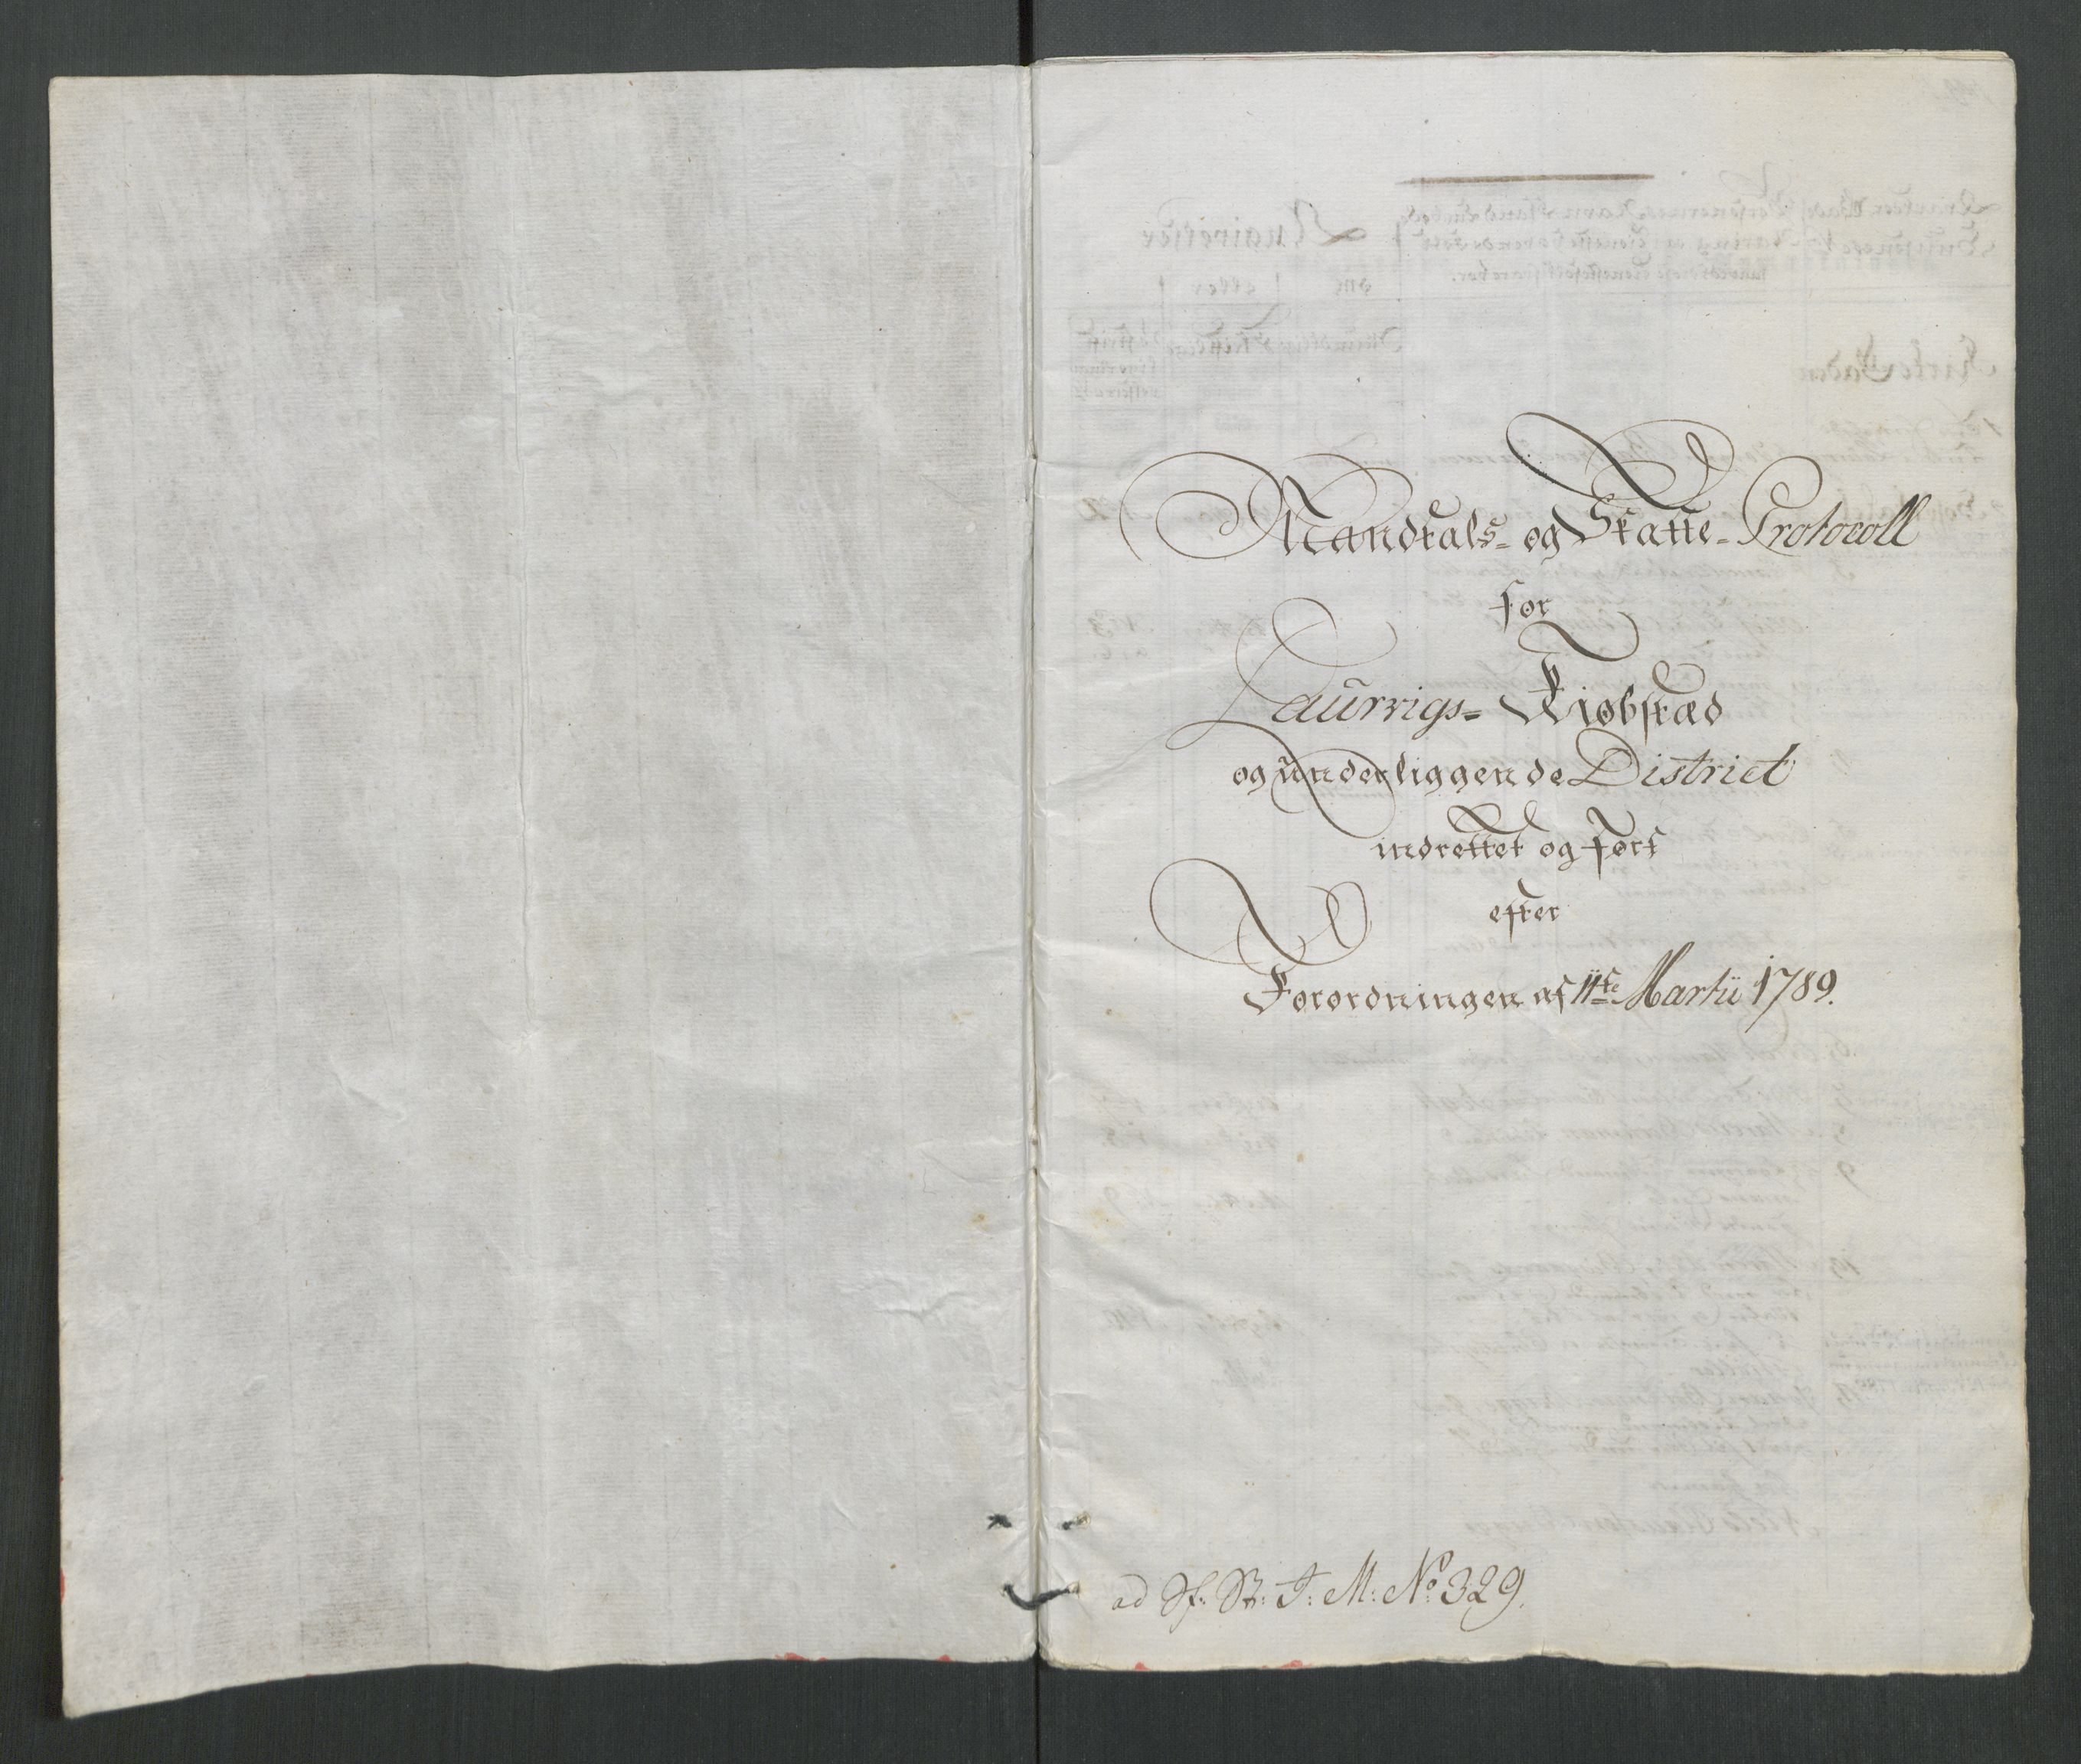 Mandtals- og Skatte-Protocoll
for
Laurvigs- Kiøbstæd
og underliggende District
indrettet og ført
efter
Forordningen af 11te Martii 1789.
ad No 329.